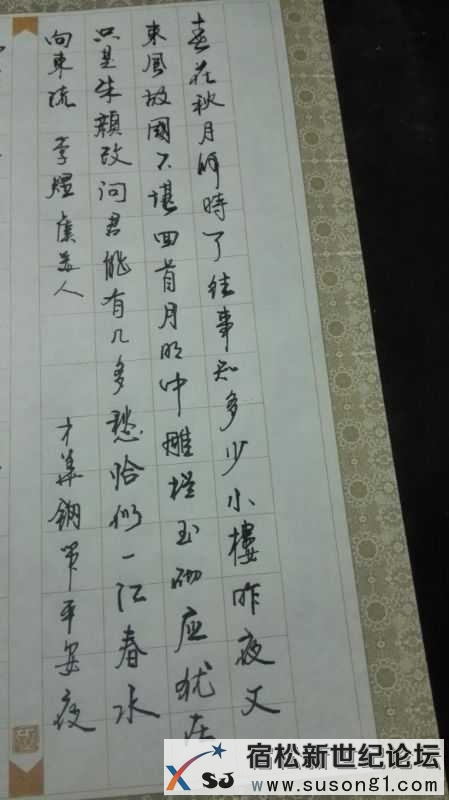 春花秋月何時了往事知多少小樓昨夜又
東風故國不堪回首月明中雕栏玉砌应犹在
只是朱顏改问君能有几多愁恰似一江春水
向東流 李煜 虞美人 才華鋼笔平安夜
宿松新世纪论坛
XSJ
www.susong1.com